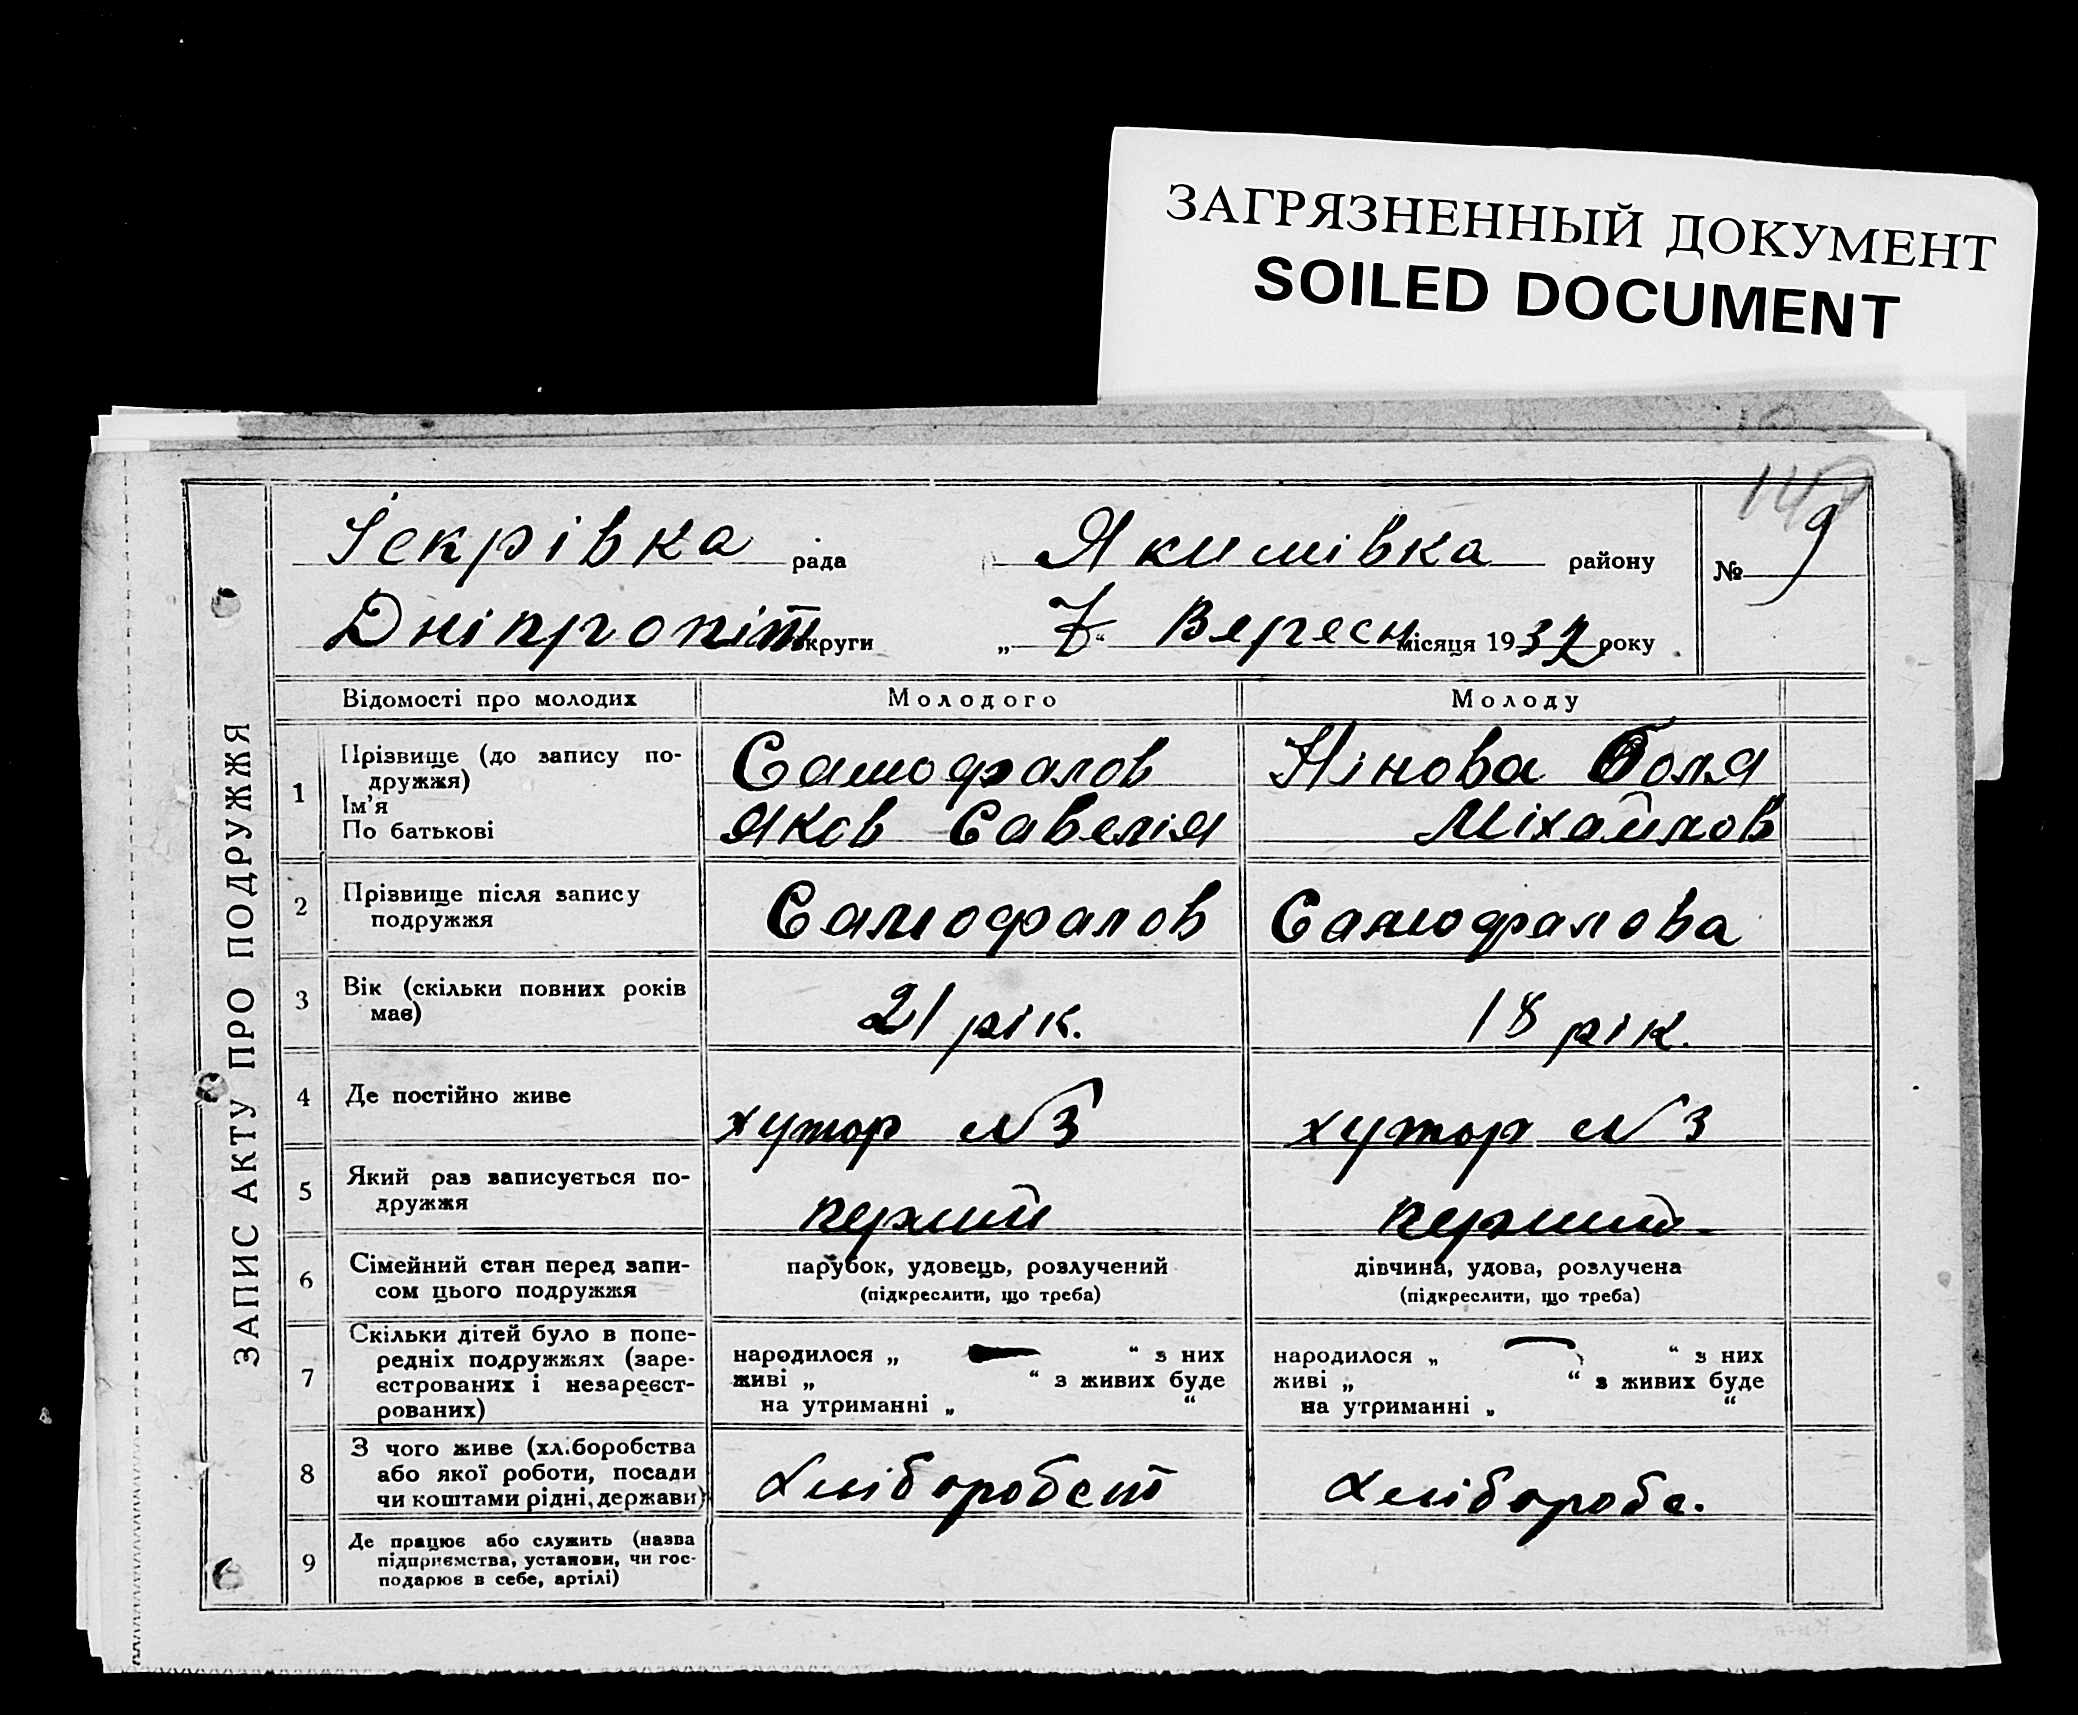 ЗАГРЯЗНЕННЫЙ ДОКУМЕНТ
SOILED DOCUMENT
ЗАПИС АКТУ ПРО ПОДРУЖЖЯ
Іскрівка рада Якимівка району № 9
Дніпропіт округи „ 7 “ Вересн місяця 1932 року
Відомості про молодих Молодого Молоду
1 Прізвище (до запису по-
дружжя)
Ім'я
По батькові
Самофалов
Яков Савелія
Нінова Поля
Міхайлов
2 Прізвище після запису
подружжя
Самофалов Самофалова
3 Вік (скільки повних років
має)
21 рік. 18 рік.
4 Де постійно живе хутор №3 хутор №3
5 Який раз записується по-
дружжя
перший перший
6 Сімейний стан перед запи-
сом цього подружжя
парубок, удовець, розлучений
(підкреслити, що треба)
дівчина, удова, розлучена
(підкреслити, що треба)
7 Скільки дітей було в попе-
редніх подружжях (заре-
єстрованих і незареєст-
рованих)
народилося „ — “ з них
живі „ “ з живих буде
на утриманні „ “
народилося „ — “ з них
живі „ “ з живих буде
на утриманні „ “
8 З чого живе (хліборобства
або якої роботи, посади
чи коштами рідні, держави)
Хліборобст Хліборобс.
9 Де працює або служить (назва
підприємства, установи, чи гос-
подарює в себе, артілі)